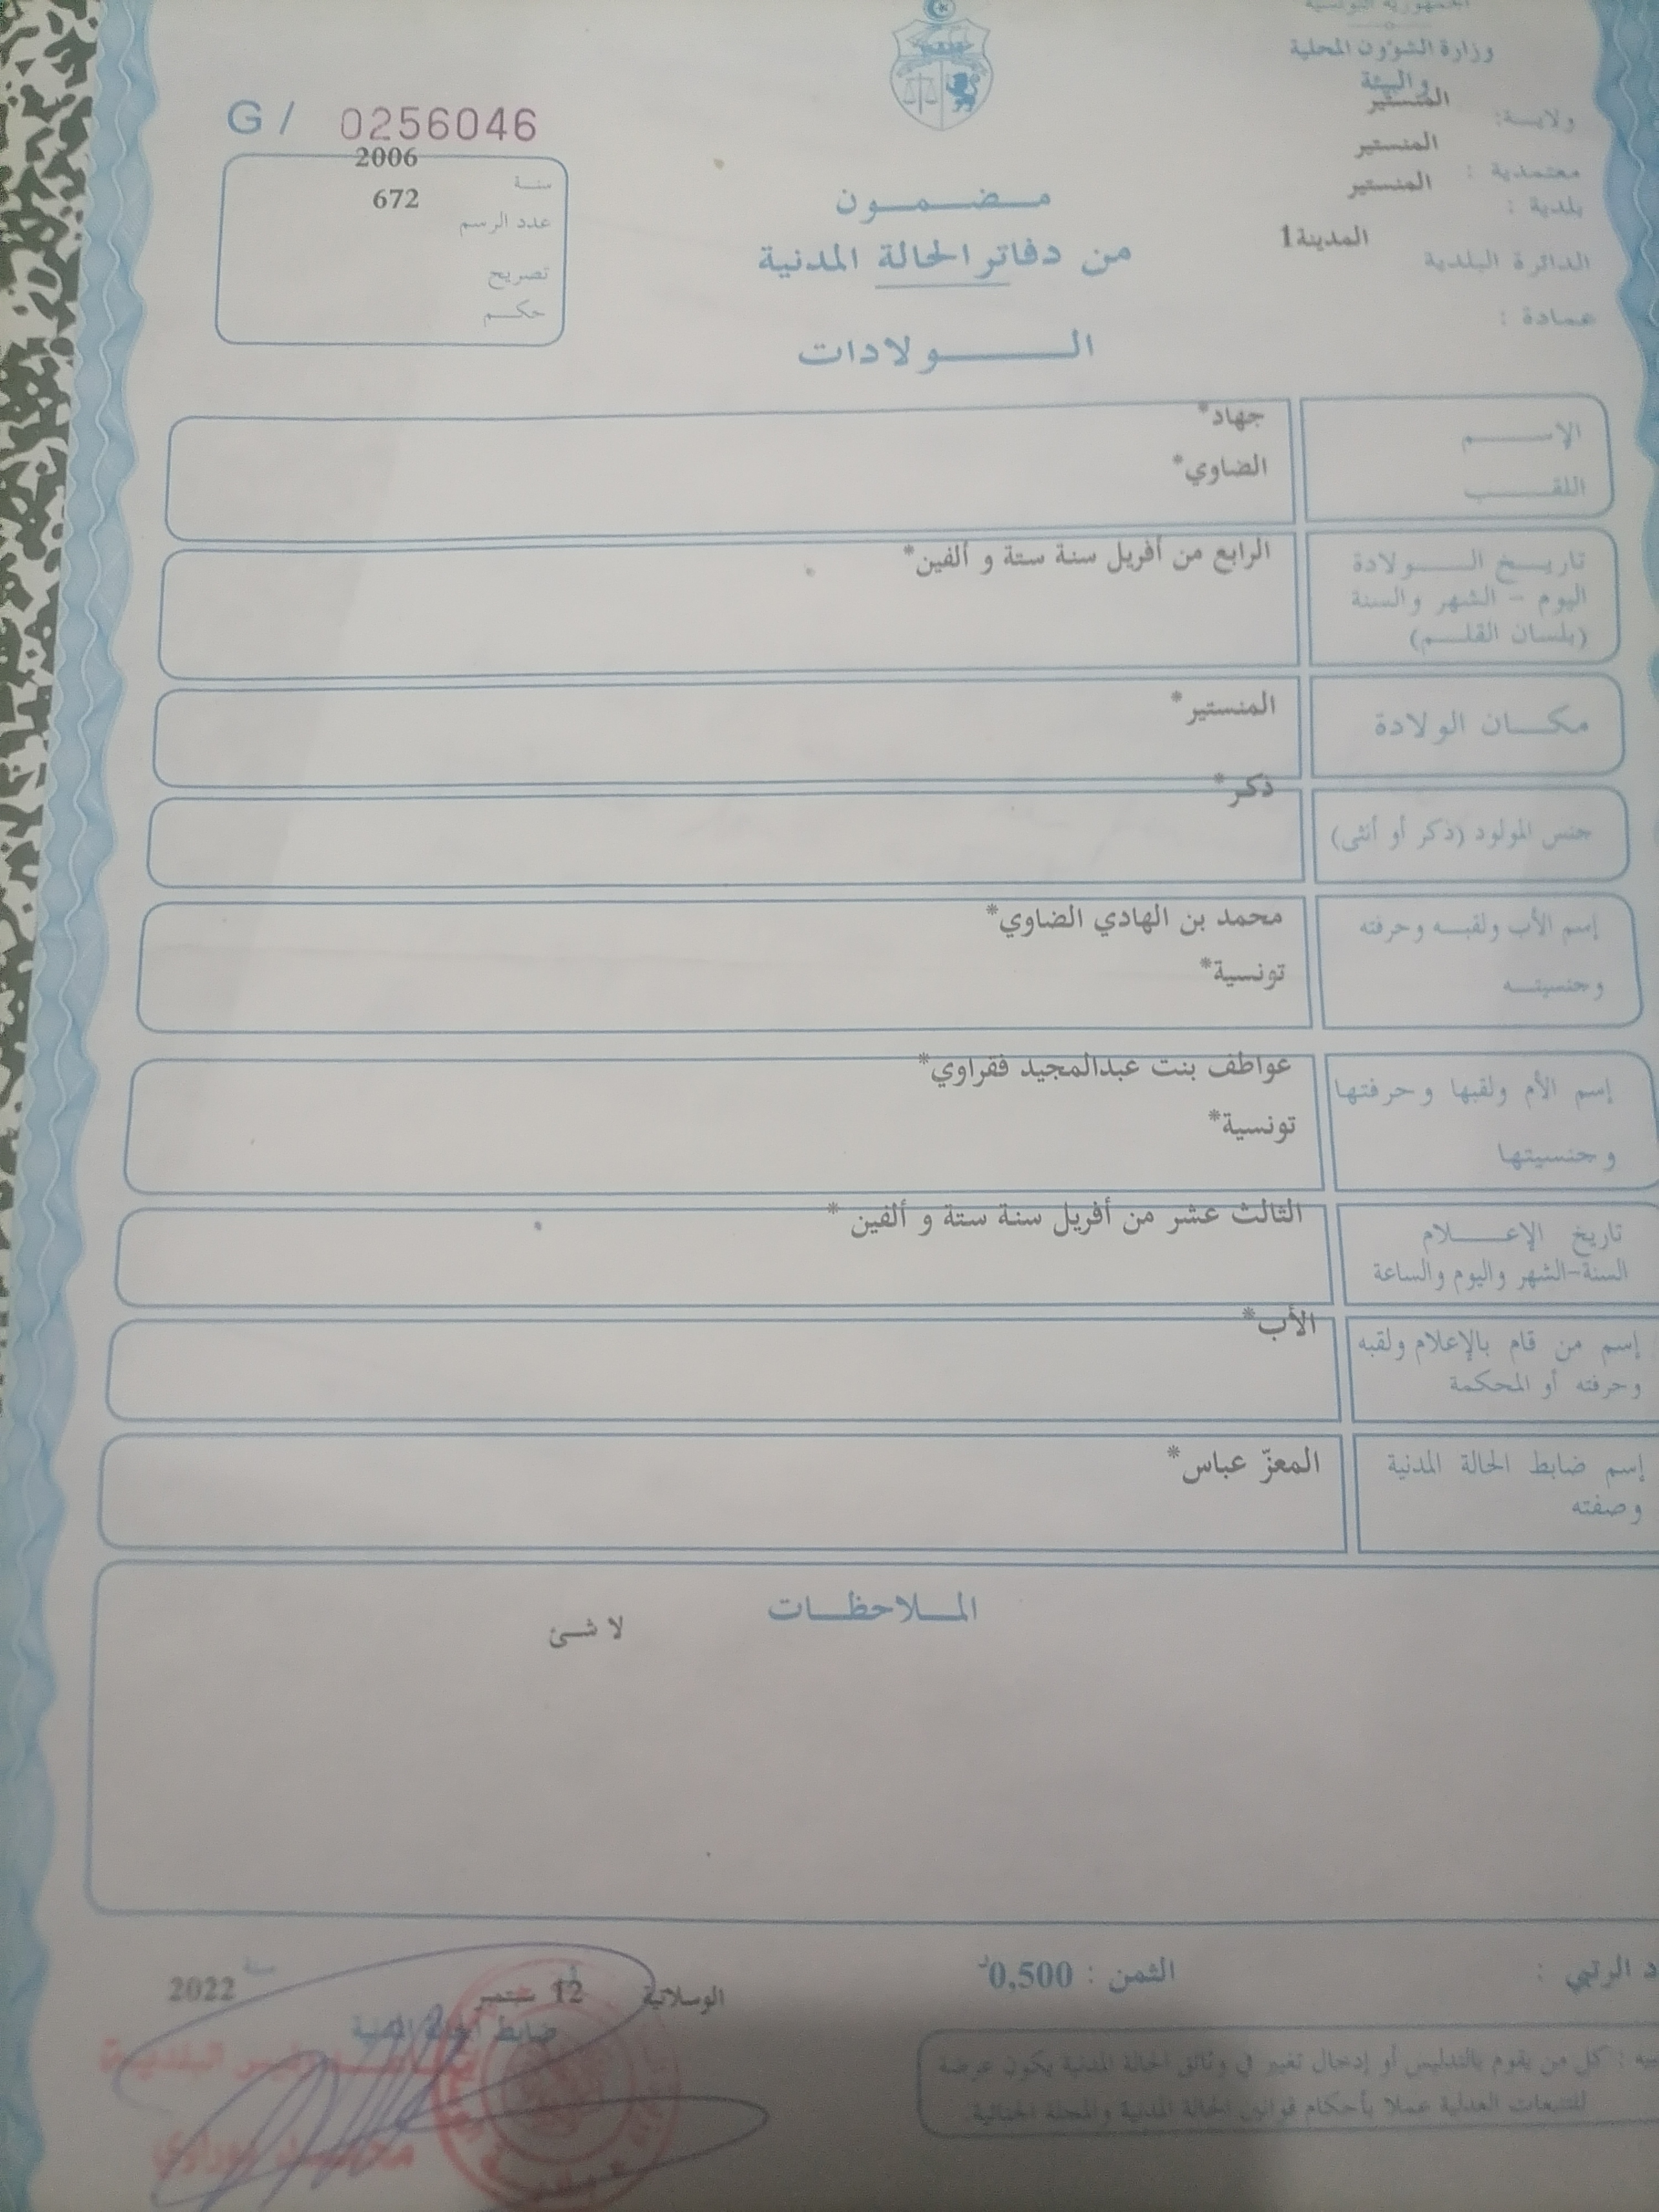 الجمهورية التونسية
وزارة الشؤون المحلية
والبيئة
ولاية: المنستير
معتمدية : المنستير
بلدية : المنستير
الدائرة البلدية المدينة1
عمادة :
G / 0256046
سنة 2006
عدد الرسم 672
تصريح
حكم
مضمون
من دفاتر الحالة المدنية
الولادات
الإسم جهاد*
اللقب الضاوي*
تاريخ الولادة الرابع من أفريل سنة ستة و ألفين*
اليوم - الشهر والسنة
(بلسان القلم)
مكان الولادة المنستير*
جنس المولود (ذكر أو أنثى) ذكر*
إسم الأب ولقبه وحرفته محمد بن الهادي الضاوي*
وجنسيته تونسية*
إسم الأم ولقبها وحرفتها عواطف بنت عبدالمجيد فقراوي*
وجنسيتها تونسية*
تاريخ الإعلام الثالث عشر من أفريل سنة ستة و ألفين *
السنة-الشهر واليوم والساعة
إسم من قام بالإعلام ولقبه الأب*
وحرفته أو المحكمة
إسم ضابط الحالة المدنية المعزّ عباس*
وصفته
الملاحظات
لا شئ
د الرتبي :
الثمن : 0,500د
الوسلاتية 12 سبتمبر سنة 2022
ضابط الحالة المدنية
يه : كل من يقوم بالتدليس أو إدخال تغيير في وثائق الحالة المدنية يكون عرضة
للتتبعات العدلية عملا بأحكام قوانين الحالة المدنية والمجلة الجنائية.
رئيس البلدية